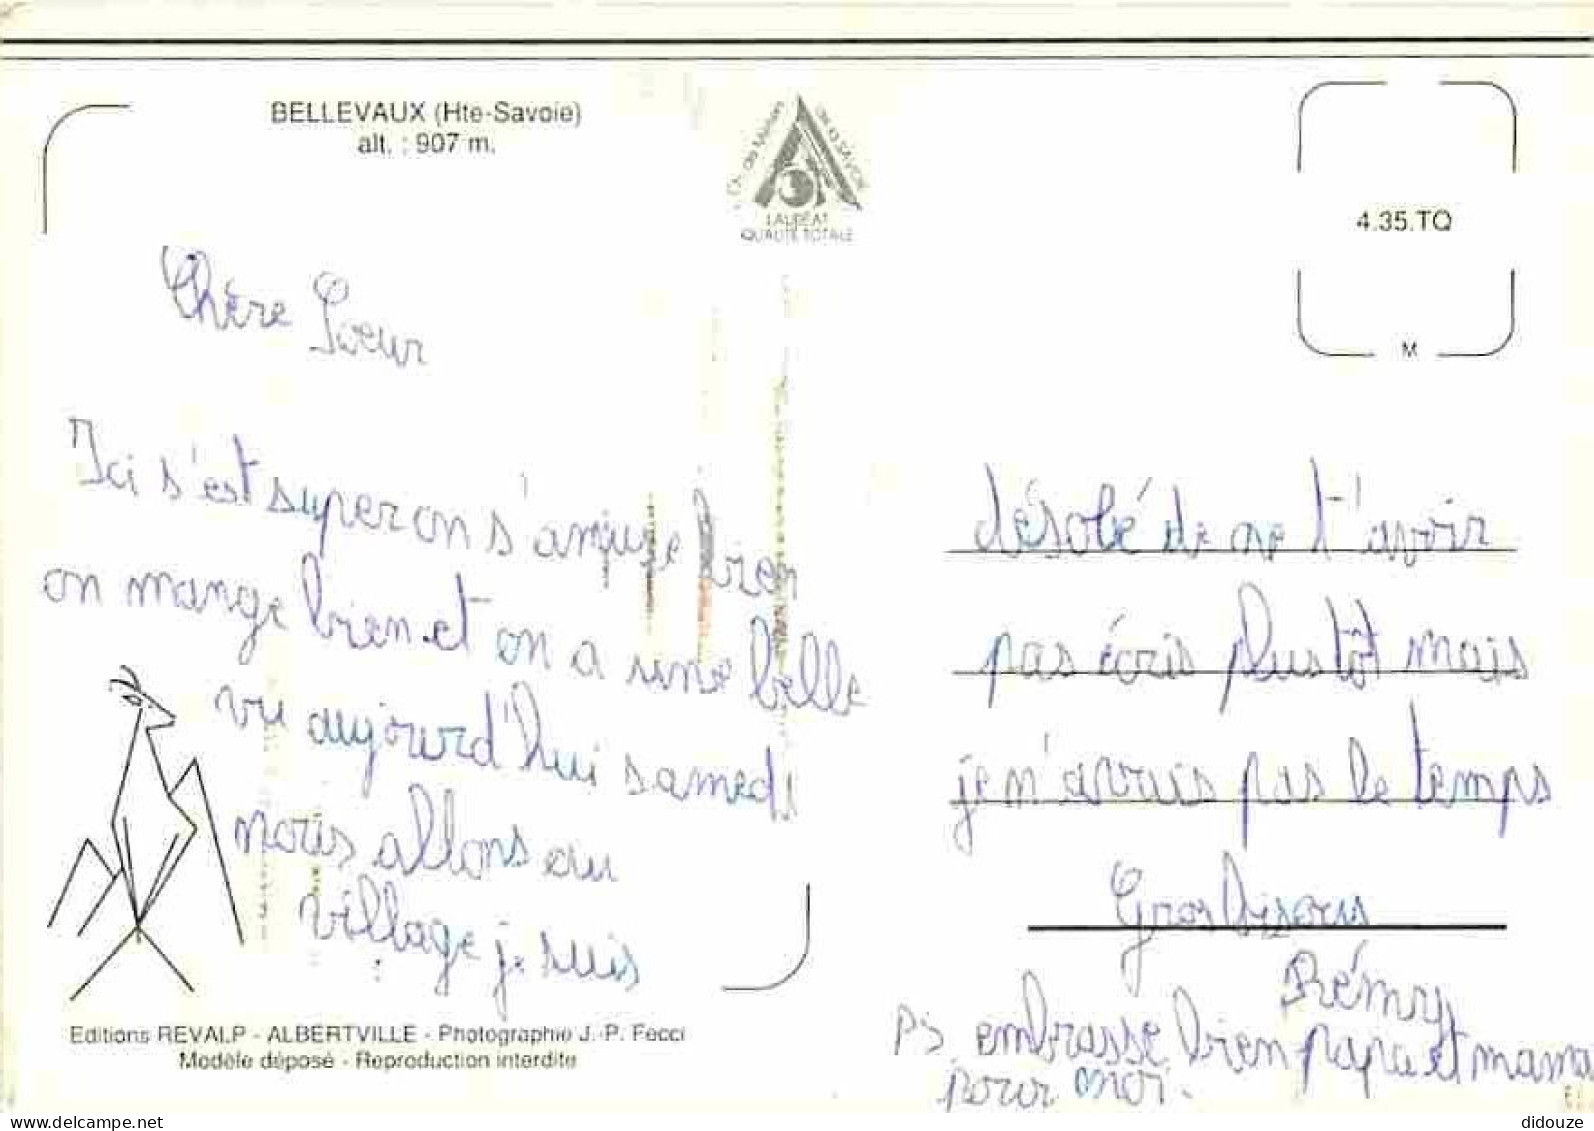 BELLEVAUX (Hte-Savoie)
alt. : 907 m.
LAURÉAT
QUALITÉ TOTALE
4.35.TQ
M
Chère Soeur
Ici s'est super on s'amuse bien
on mange bien et on a une belle
vu aujourd'hui samedi
nous allons au
village je suis
désolé de ne t'avoir
pas écris plustôt mais
je n'avais pas le temps
Gros bisous
Rémy
PS embrasse bien papa et mama
pour moi.
Editions REVALP - ALBERTVILLE - Photographie J.-P. Fecci
Modèle déposé - Reproduction interdite
didouze